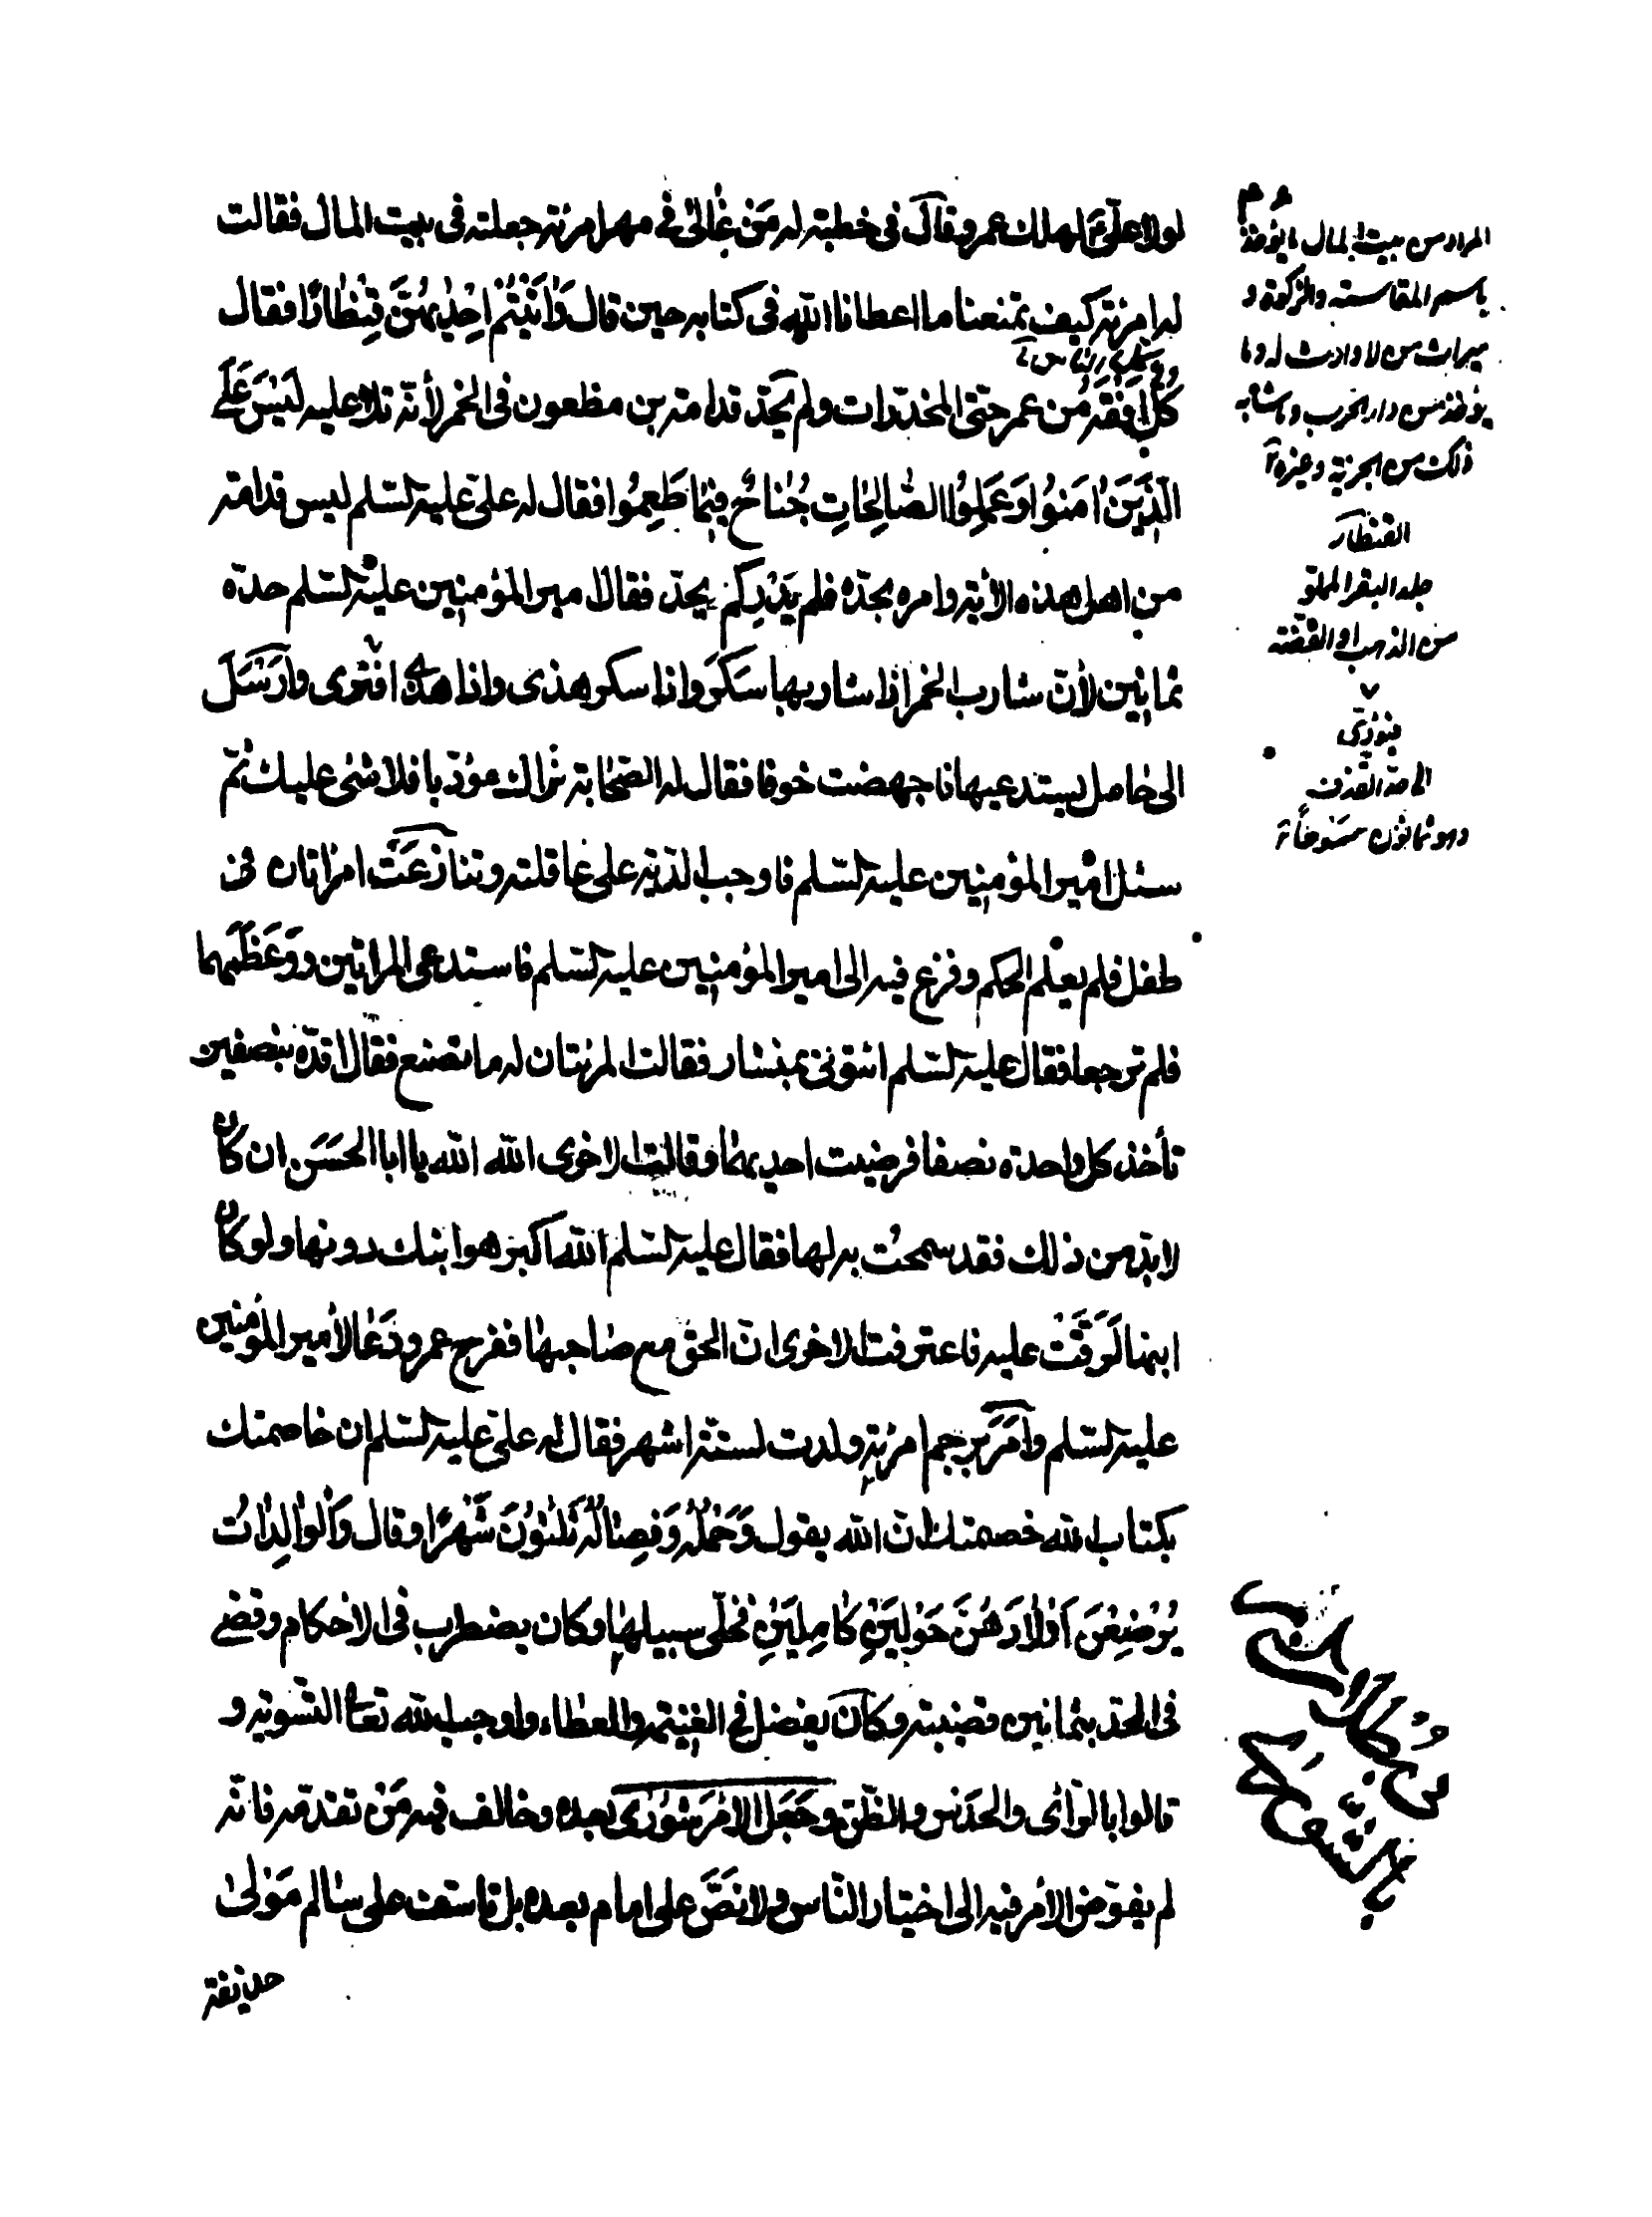 لولا علیّ لهلك عمر وقال فی خطبته له مَن غٰالیٰ فی مهر امرئته جعلته فی بیت المال فقالت
له امرئة كیف تمنعنا ما اعطانا الله فی كتابه حین قال وَاٰتَیْتُمْ اِحْدٰیهُنَّ قِنْطٰارًا فقال
كلّ افْقَهُ مِن عمر حتّی المخدّرات ولم یحدّ قدامة بن مظعون فی الخمر لأنّه تلا علیه لَیْسَ عَلَی
الَّذِینَ اٰمَنُوا وَعَمِلُوا الصّٰالِحٰاتِ جُنٰاحٌ فِیمٰا طَعِمُوا فقال له علیّ علیه السّلم لیس قدامة
من اهل هذه الأیة وامره بحدّه فلم یَدْرِ كم یحدّ فقال امیر المؤمنین علیه السّلم حدّه
ثمانین لأنّ شارب الخمر اذا شاربها سَكَرَ واذا سكر هذی واذا هذی افتری وارْسَلَ
الی حٰامل یستدعیها فاجهضت خوفا فقال له الصّحٰابة نراك مؤدّبا فلا شئ علیك ثمّ
سئل امیر المؤمنین علیه السّلم فاوجب الدّیة علی عٰاقلته وتنازعَتْ امرٰاتان فی
طفل فلم یعلم الحكم وفزع فیه الی امیر المؤمنین علیه السّلم فاستدعی المراتین ووَعَظَهما
فلم ترجعا فقال علیه السّلم ائتونی بمنشار فقالت المرئتان له ما تصنع فقال اقدّه بنصفین
تأخذ كل واحدة نصفا فرضیت احدیهمٰا وقالت الاخری الله الله یا ابا الحَسَن ان كان
لابدّ من ذلك فقد سمحتُ به لها فقال علیه السّلم الله اكبر هو ابنك دونها ولو كان
ابنها لَرَقَّتْ علیه فاعترفت الاخری انّ الحق مع صٰاحبهٰا ففرح عمر ودَعٰا لأمیر المؤمنین
علیه السّلم وامَرَ برجم امرئة ولدت لستّة اشهر فقال له علیّ علیه السّلم ان خاصمتك
بكتاب الله خصمتك انّ الله یقول وَحَمْلُهُ وَفِصٰالُهُ ثَلٰثُونَ شَهْرًا وقال وَالْوٰالِدٰاتُ
یُرْضِعْنَ اَوْلاٰدَهُنَّ حَوْلَیْنِ كٰامِلَیْنِ فخلّی سبیلهٰا وكان یضطرب فی الاحكام وقضی
فی الحدّ بثمانین قضیة وكان یفضل فی الغنیمة والعطٰاء واوجب الله تعالی التّسویة و
قالوا بالرّأی والحدَس والظّنّ وجَعَل الامْرَ شُورٰی بعده وخالف فیه مَنْ تقدّمه فانّه
لم یفوّض الأمر فیه الی اختیار النّاس ولا نَصَّ علی امام بعده بل تاسّف علی سٰالم مَوْلیٰ
حذیفة
المراد من بیت المال ما یؤخذ
باسم المقاسمة والزكوة و
میراث من لا وارث له وما
یؤخذ من دار الحرب وما شابه
ذلك من الجزیة وغیره
القنطار
جلد البقر المملو
من الذهب او الفضّة